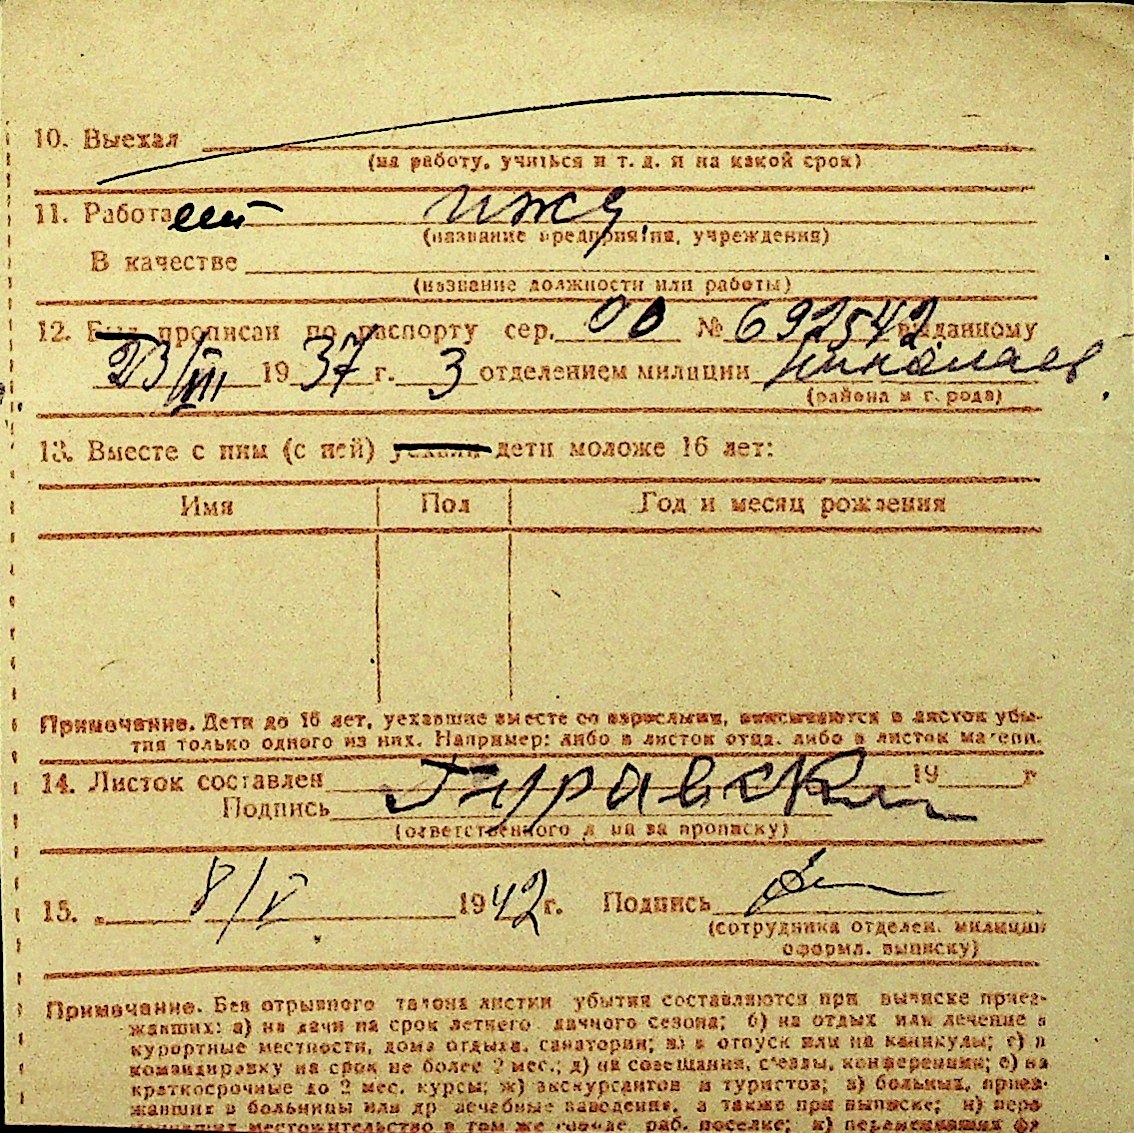 10. Выехал
(на работу, учиться и т. д. и на какой срок)
11. Работает ижд.
(название предприятия, учреждения)
В качестве
(название должности или работы)
12. Был прописан по паспорту сер. № 692542 выданному
23/VIII 1937 г. 3 отделением милиции Николаев
(района и города)
13. Вместе с ним (с ней) уехали дети моложе 16 лет:
Имя Пол Год и месяц рождения
Примечание. Дети до 16 лет, уехавшие вместе со взрослыми, вписываются в листок убы-
тия только одного из них. Например: либо в листок отца, либо в листок матери.
14. Листок составлен 19 г
Подпись
(ответственного лица за прописку)
15. 8/V 1942 г. Подпись
(сотрудника отделен. милиции
оформл. выписку)
Примечание. Без отрывного талона листки убытия составляются при выписке приез-
жавших: а) на дачи на срок летнего дачного сезона; б) на отдых или лечение в
курортные местности, дома отдыха, санатории; в) в отпуск или на каникулы; г) в
командировку на срок не более 2 мес.; д) на совещания, съезды, конференции; е) на
краткосрочные до 2 мес. курсы; ж) экскурсантов и туристов; з) больных, приез-
жавших в больницы или др лечебные заведения, а также при выписке; и) пере
местожительство в том же городе, раб. поселке; к)